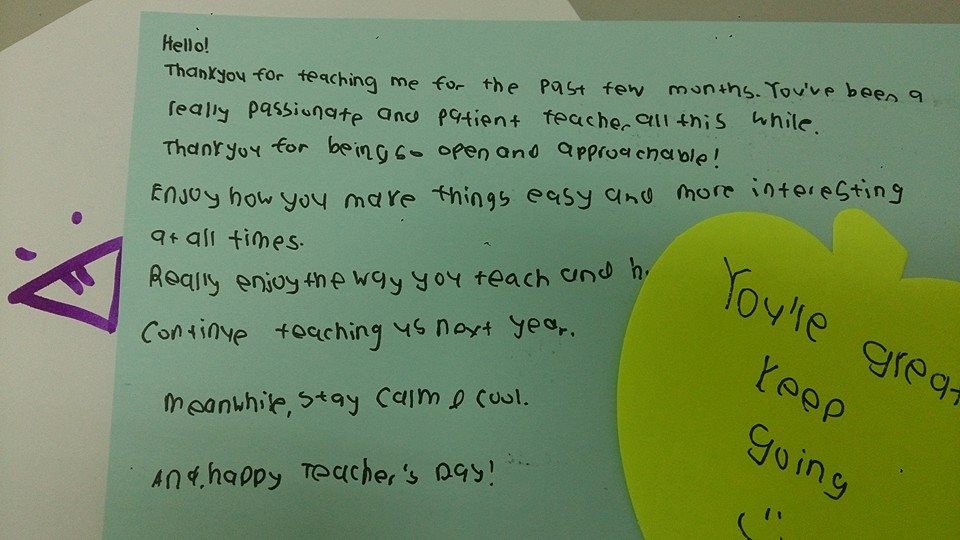 Hello!
Thankyou for teaching me for the past few months. You've been a
really passionate and patient teacher all this while.
Thankyou for being so open and approachable!
Enjoy how you make things easy and more interesting
at all times.
Really enjoy the way you teach and
continue teaching us next year.
Meanwhile, stay calm & cool.
And, happy Teacher's Day!
You're great
keep
going